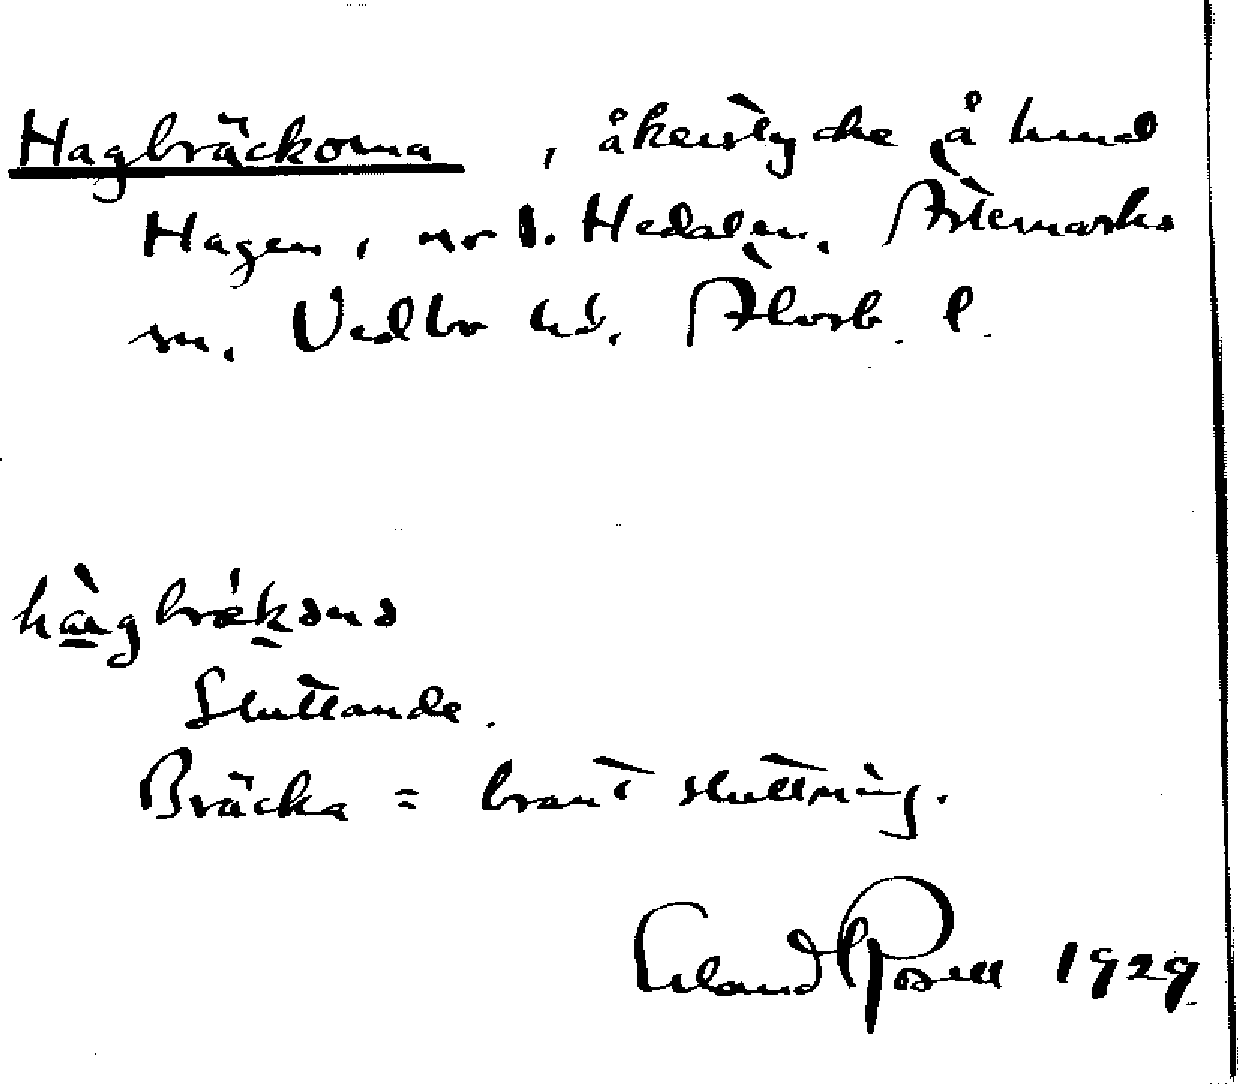 Hagbräckorna, åkerstycke å hmd
Hagen, nr 1. Hedalen. Ärtemarks
sn. Vedbo hd. Älvsb. l.
hàgbrǽkənə
Sluttande.
Bräcka = brant sluttning.
Erland Rosell 1929